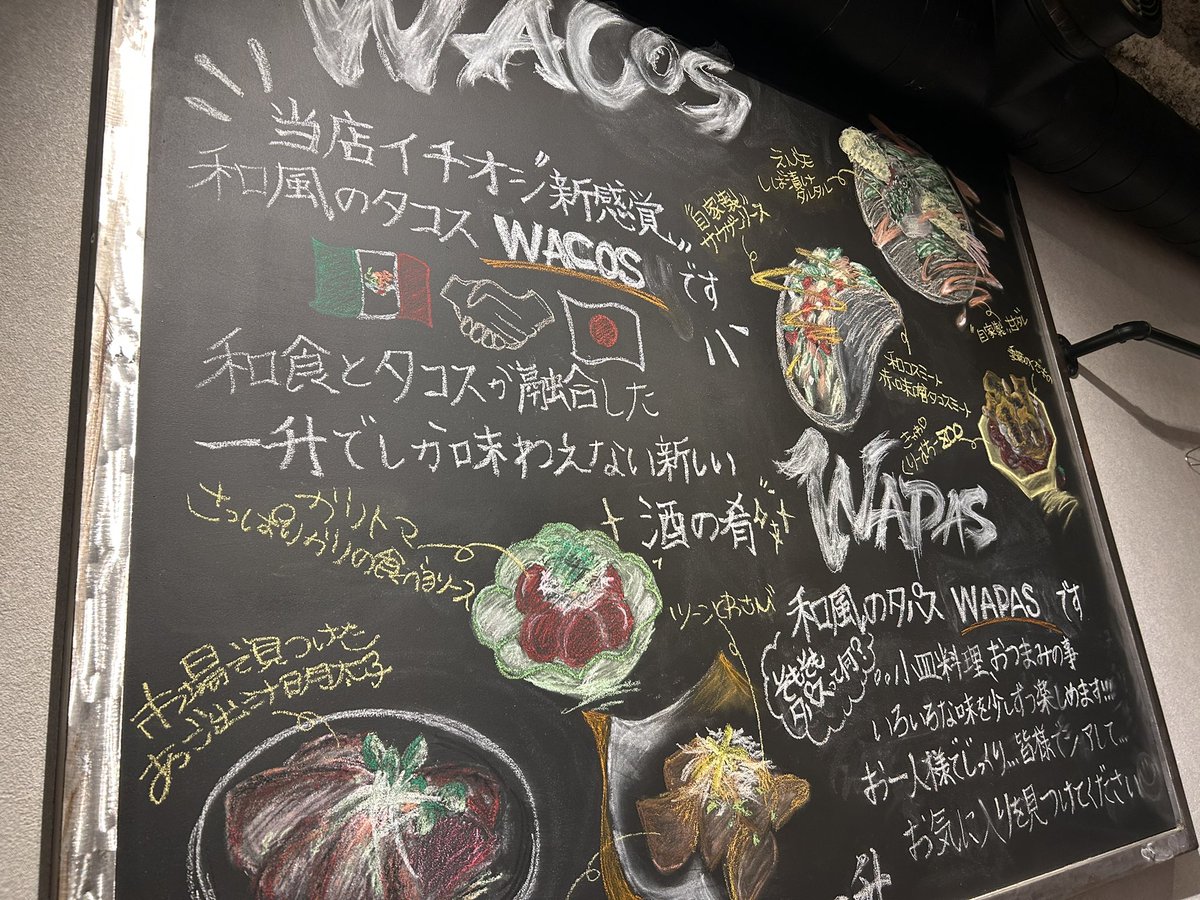 WACOS
当店イチオシ"新感覚"
和風のタコス WACOS です
和食とタコスが融合した
一升でしか味わえない新しい
酒の肴
えびと
しば漬け
タルタル
"自家製"
サウザンソース
"自家製"
和コスミート
赤味噌タコスミート
WAPAS
和風のタパス WAPAS です
そもそも
タパスって何?
小皿料理、おつまみの事
いろいろな味を少しずつ楽しめます!!!
お一人様でじっくり...皆様でシェアして...
お気に入りを見つけてください
ガリトマ
さっぱりガリの食べるソース
市場で漬つけた
あっつ出汁明太子
升